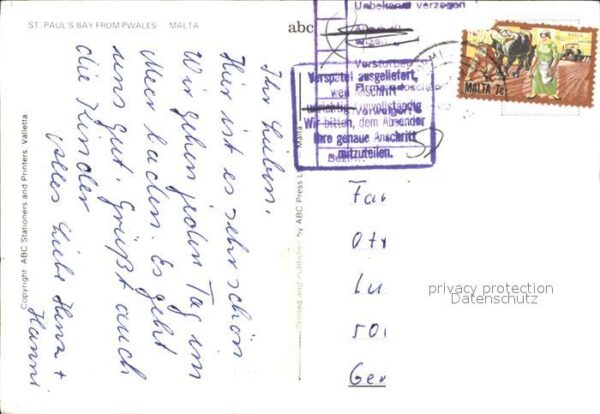 ST. PAUL'S BAY FROM PWALES MALTA
abc
Ihr Lieben,
Hier ist es sehr schön
Wir gehen jeden Tag im
Meer baden. Es geht
uns gut. Grüßt auch
die Kinder
alles Liebe Heinz +
Hanni
Copyright ABC Stationers and Printers, Valletta
Printed and Published by ABC Press Malta
Unbekannt verzogen
Verstorben
Firma erloschen
Verweigert
Verspätet ausgeliefert,
weil Anschrift
unrichtig/unvollständig
Wir bitten, dem Absender
Ihre genaue Anschrift
mitzuteilen.
MALTA 7c
Fa
Ot
Lu
50
Ger
privacy protection
Datenschutz